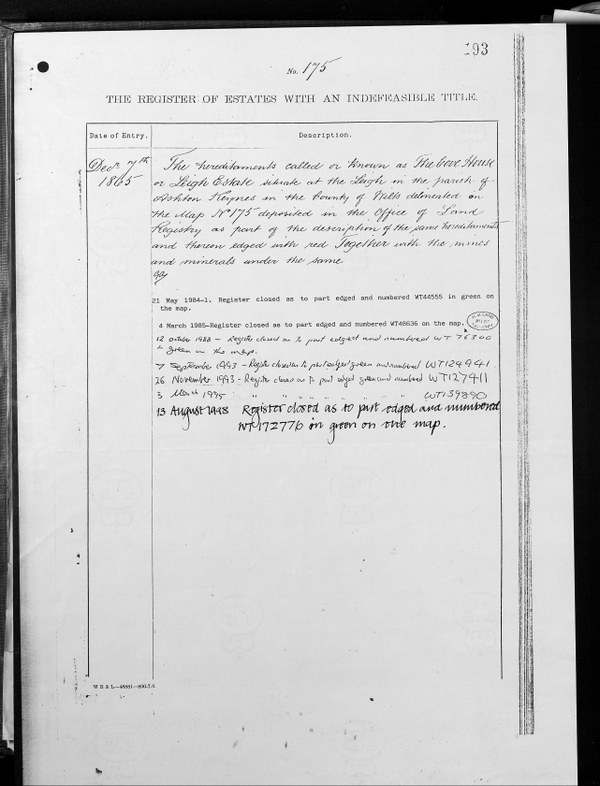 193
No. 175
THE REGISTER OF ESTATES WITH AN INDEFEASIBLE TITLE.
Date of Entry.
Description.
Decr. 7th
1865
The hereditaments called or known as The Cove House
or Leigh Estate situate at the Leigh in the parish of
Ashton Keynes in the County of Wilts delineated on
the Map No 175 deposited in the Office of Land
Registry as part of the description of the same hereditaments
and thereon edged with red Together with the mines
and minerals under the same
21 May 1984-1. Register closed as to part edged and numbered WT44555 in green on
the map.
4 March 1985-Register closed as to part edged and numbered WT48636 on the map.
12 October 1988 - Register closed as to part edged and numbered WT 76300
in green on the map.
7 September 1993 - Register closed as to part edged green and numbered WT124941
26 November 1993 - Register closed as to part edged green and numbered WT127411
3 March 1995 " " " " " " " " WT139890
13 August 1998 Register closed as to part edged and numbered
WT172776 in green on the map.
W B & L